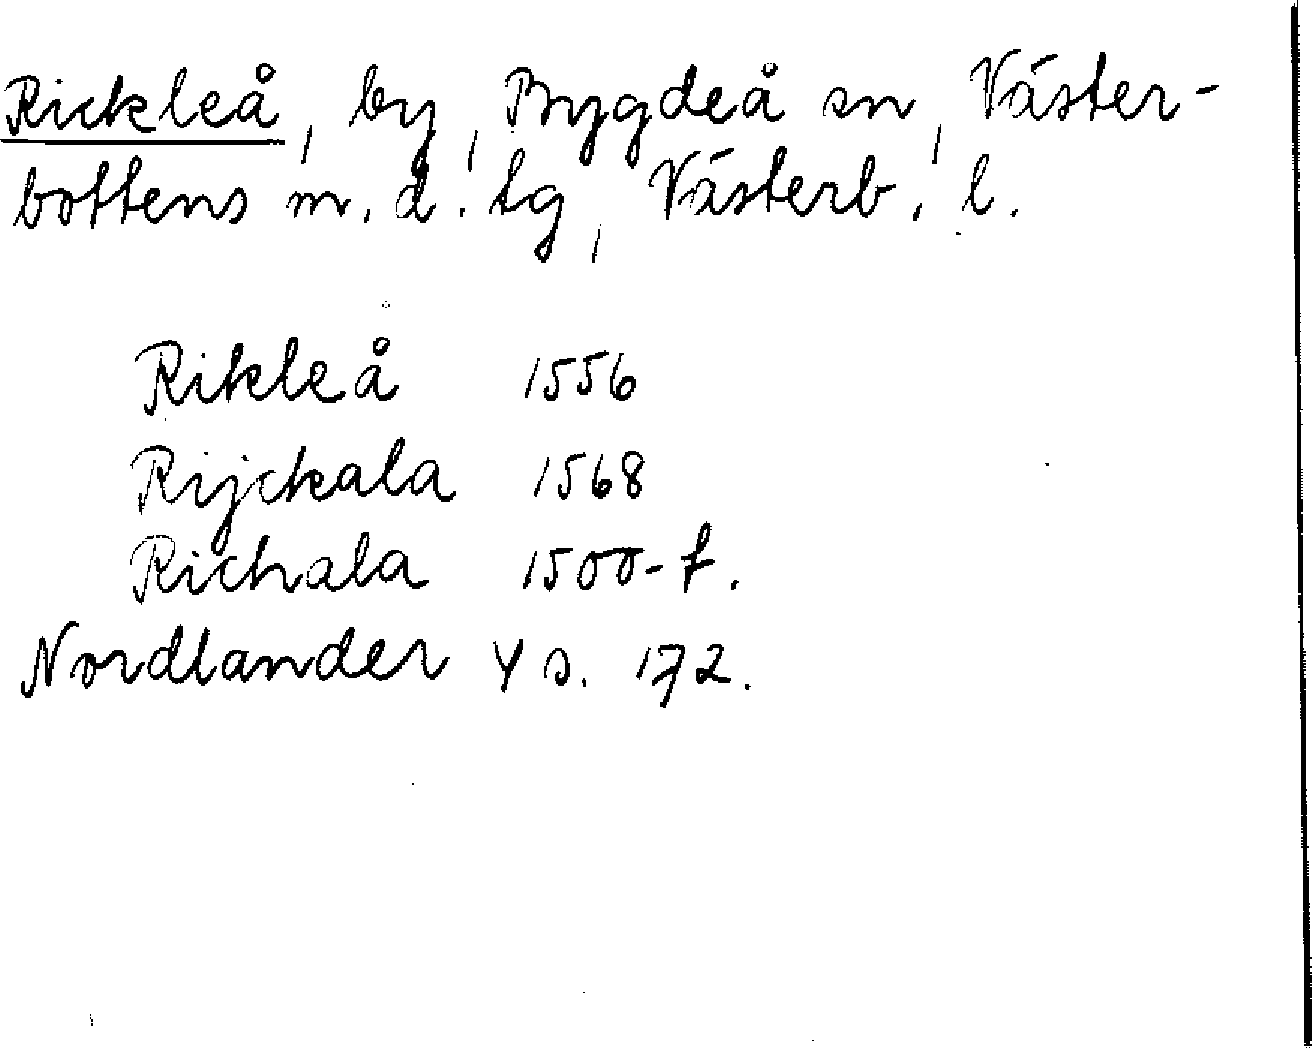 Rickleå, by, Bygdeå sn, Väster-
bottens m. d. tg, Västerb. l.
Rikleå 1556
Rijckala 1568
Richala 1500-t.
Nordlander Y s. 172.